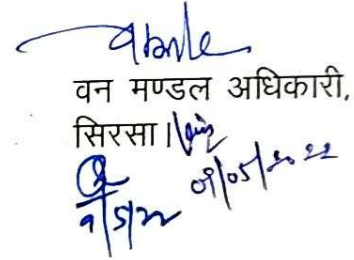 वन मण्डल अधिकारी,
सिरसा।
09/05/2022
9/5/22